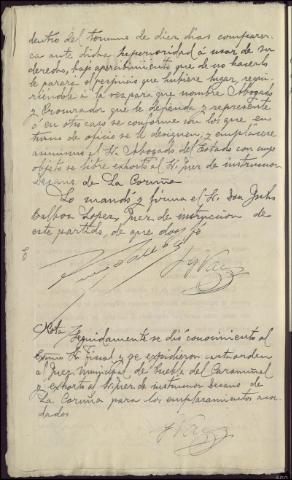 dentro del termino de diez dias comparez-
ca ante dicha superioridad á usar de su
derecho, bajo apercibimiento que de no hacerlo
le parará el perjuicio que hubiere lugar, requi-
riéndole á la vez para que nombre Abogado
y Procurador que le defienda y represente
ó en otro caso se conforme con los que en
turno de oficio se le designen; y emplácese
asimismo el Sr. Abogado del Estado con cuyo
objeto se libre exhorto al Sr. Juez de instruccion
Decano de La Coruña
Lo mandó y firma el Sr. Don
Lopez, Juez de instruccion de
este partido, de que doy fé
Nota Seguidamente se dió conocimiento al
Sr. Fiscal y se expidieron carta-orden
al Juez Municipal de Puebla del Caramiñal
y exhorto al Sr. Juez de instruccion Decano de
La Coruña para los emplazamientos acor-
dados